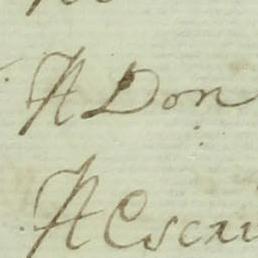 A Don
A Escri